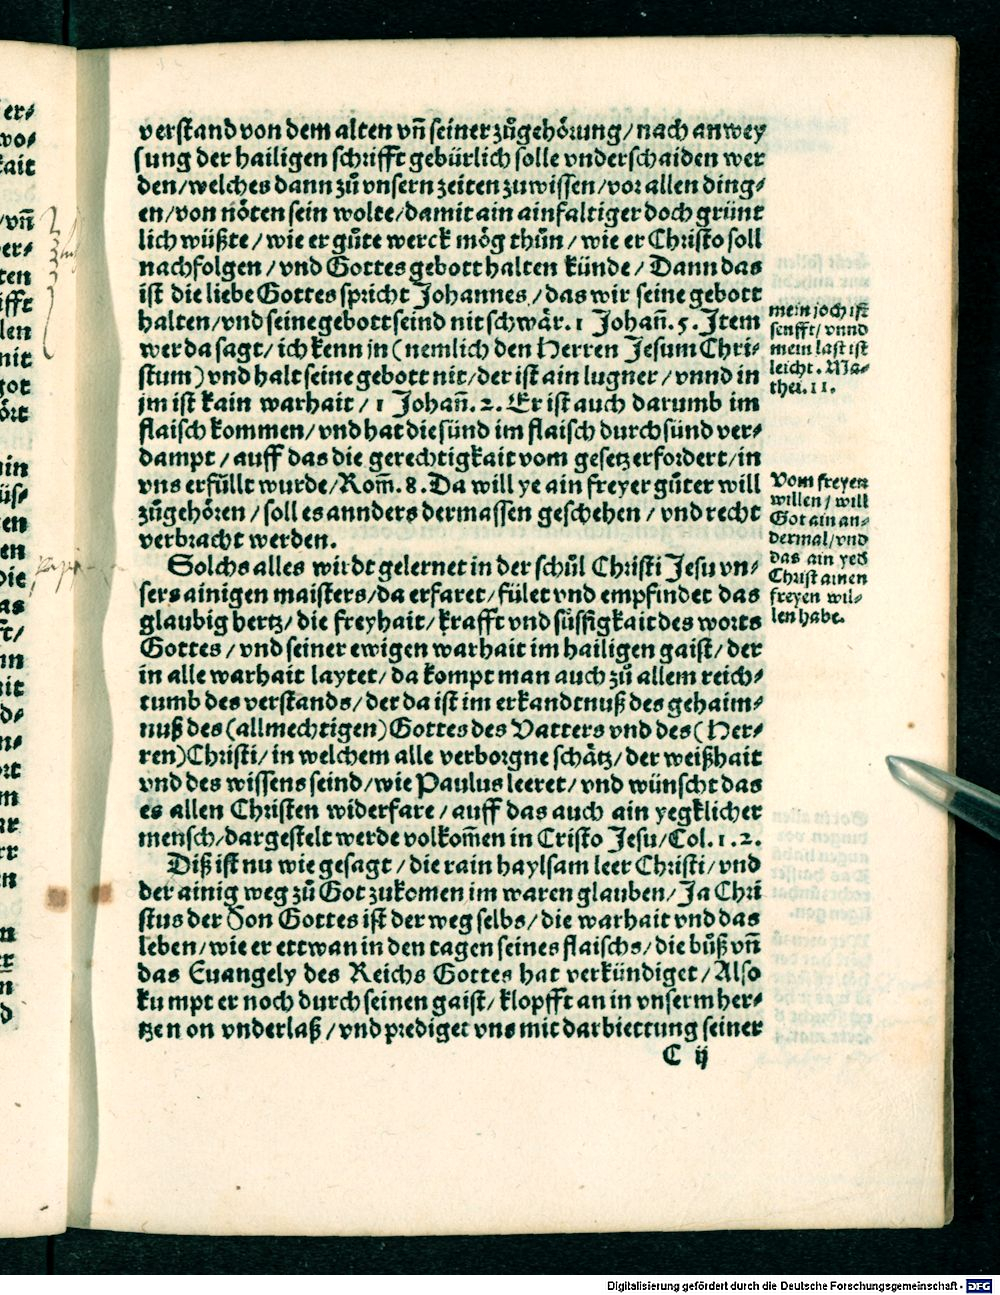 verstand von dem alten vn̄ seiner zůgehörung / nach anwey
sung der hailigen schrifft gebürlich solle vnderschaiden wer
den / welches dann zů vnsern zeiten zuwissen / vor allen ding⸗
en / von nöten sein wolte / damit ain ainfaltiger doch grünt
lich wüßte / wie er gůte werck mög thůn / wie er Christo soll
nachfolgen / vnd Gottes gebott halten künde / Dann das
ist die liebe Gottes spricht Johannes / das wir seine gebott
halten / vnd seine gebott seind nit schwär. 1 Johan̄. 5. Item
wer da sagt / ich kenn jn (nemlich den Herren Jesum Chri⸗
stum) vnd halt seine gebott nit / der ist ain lugner / vnnd in
jm ist kain warhait / 1 Johan̄. 2. Er ist auch darumb im
flaisch kommen / vnd hat die sünd im flaisch durch sünd ver⸗
dampt / auff das die gerechtigkait vom gesetz erfordert / in
vns erfüllt wurde / Rom̄. 8. Da will ye ain freyer gůter will
zůgehören / soll es annders dermassen geschehen / vnd recht
verbracht werden.
Solchs alles wirdt gelernet in der schůl Christi Jesu vn⸗
sers ainigen maisters / da erfaret / fület vnd empfindet das
glaubig hertz / die freyhait / krafft vnd süssigkait des worts
Gottes / vnd seiner ewigen warhait im hailigen gaist / der
in alle warhait laytet / da kompt man auch zů allem reich⸗
tumb des verstands / der da ist im erkandtnuß des gehaim⸗
nuß des (allmechtigen) Gottes des Vatters vnd des (Her⸗
ren) Christi / in welchem alle verborgne schätz / der weißhait
vnd des wissens seind / wie Paulus leeret / vnd wünscht das
es allen Christen widerfare / auff das auch ain yegklicher
mensch / dargestelt werde volkom̄en in Cristo Jesu / Col. 1. 2.
Diß ist nu wie gesagt / die rain haylsam leer Christi / vnd
der ainig weg zů Got zukomen im waren glauben / Ja Chri
stus der Son Gottes ist der weg selbs / die warhait vnd das
leben / wie er ettwan in den tagen seines flaischs / die bůß vn̄
das Euangely des Reichs Gottes hat verkündiget / Also
kumpt er noch durch seinen gaist / klopfft an in vnserm her⸗
tzen on vnderlaß / vnd prediget vns mit darbiettung seiner
C ij
mein joch ist
senfft / vnnd
mein last ist
leicht. Ma⸗
thei. 11.
Vom freyen
willen / will
Got ain an⸗
dermal / vnd
das ain yed
Christ ainen
freyen wil⸗
len habe.
Digitalisierung gefördert durch die Deutsche Forschungsgemeinschaft - DFG